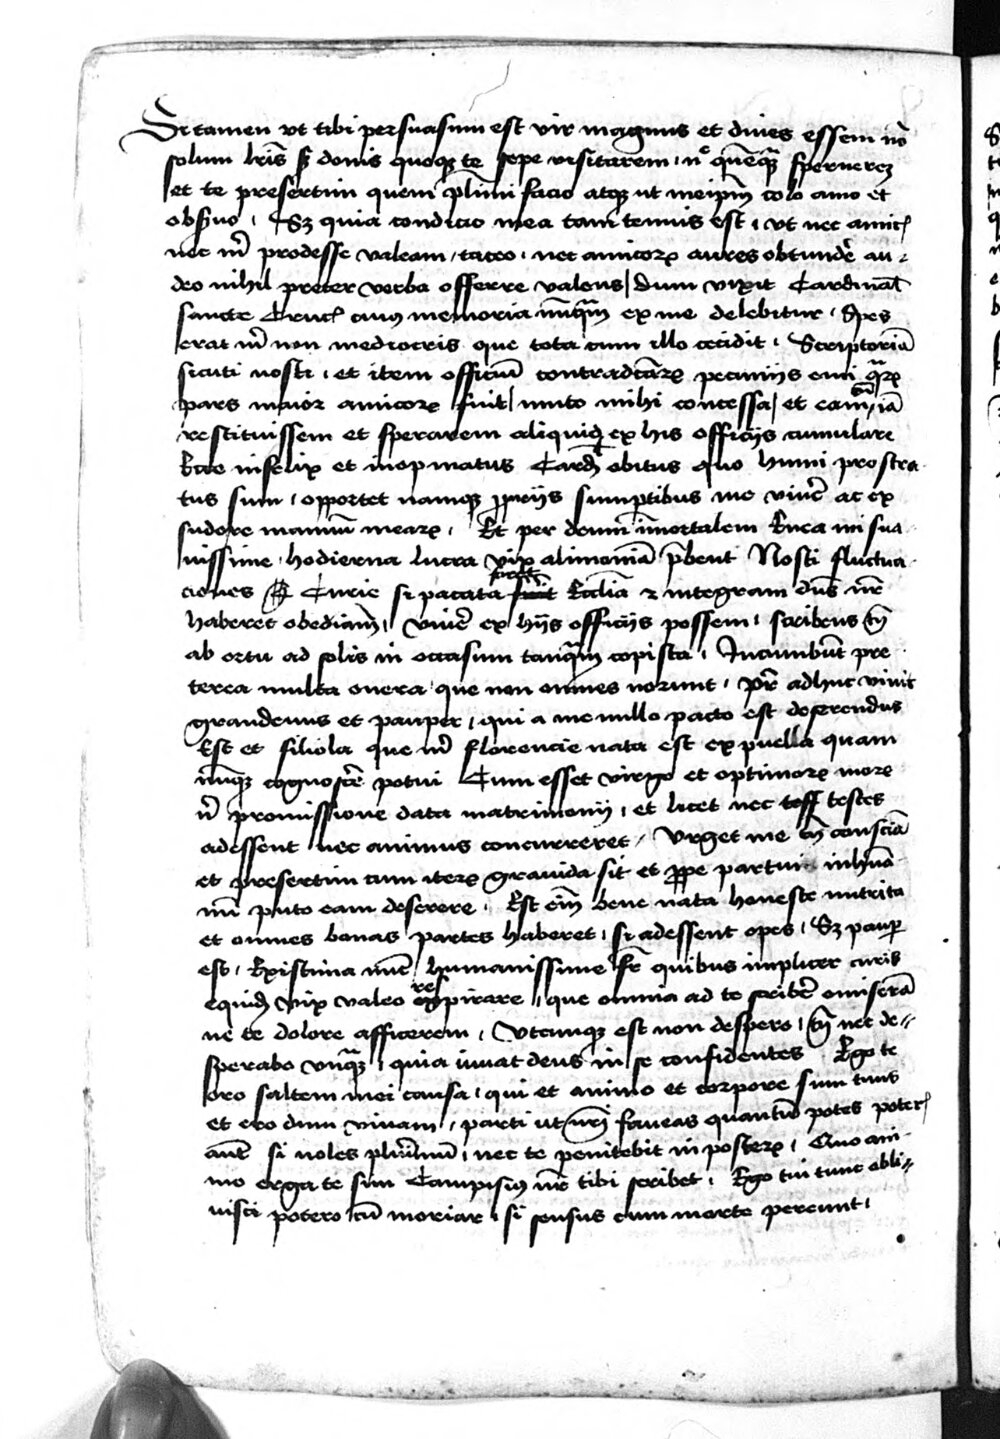 Si tamen ut tibi persuasum est vir magnus et dives essem nō
solum lris sʒ donis quoqʒ te sepe visitarem / n° quēqꝫ spernereʒ
et te presertim quem plimi facio atqʒ ut meipm̄ colo amo et
obsvo / Sʒ quia condicio mea tam tenuis est / ut nec amicꝭ
nec m̄ prodesse valeam / taceo / nec amicorꝝ aures obtundē au-
deo nihil preter verba offerre valens / dum vixit Cardinal
sancte Crucꝭ cuiꝰ memoria nūqm̄ ex me delebitur / Spes
erat m̄ non mediocris que tota cum illo cecidit / Scriptoriā
sicuti nosti / et item officiū contradcārꝝ pecuniis emi qrꝝ
pars maior amicorꝝ fuit / muto mihi concessa / et eam tn̄ iā
restituissem et sperarem aliquid ex his officiis cumulare
Ecce infelix et inopinatus Card obitus quo humi prostra-
tus sum / opportet namqʒ ꝓpriis sumptibus me vivē ac ex
sudore manuū mearꝝ / Et per deum īmortalem Luca mi sua-
vissime / hodierna lucra vix alimoniā pbent Nosti fluctua-
ciones Curie si pacata foret Eccliam ⁊ integram dn̄s nr̄
haberet obediam̄ / vivē ex hiis officiis possem / scribens tn̄
ab ortu ad solis in occasum tanqm̄ copista / Incumbūt pre-
terea multa onera / que non omnes norunt / pr̄ adhuc vivit
grandevus et pauper / qui a me nullo pacto est deserendus
Est et filiola que m̄ florencie nata est ex puella quam
nūqʒ cognoscē potui Cum esset virgo et optimorꝝ morꝝ
n̄ promissione data matrimonij / et licet nec testes
adessent nec animus concurreret / Urget me tn̄ consciā
et presertim cum iterꝝ gravida sit et ꝓpe partui inhuā
nū puto eam deserere / Est em̄ bene nata honeste nutrita
et omnes bonas partes haberet / si adessent opes / Sʒ pauꝑ
est / Existima nūc humanissime fr̄ quibus implicer curis
equid vix valeo respirare / que omnia ad te scribē omiserā
ne te dolore afficerem / Utcunqʒ est non despero / tn̄ nec de-
sperabo unqʒ / quia iuvat deus in se confidentes Ego te
oro saltem mei causa / qui et animo et corpore sum tuus
et ero dum vivam / parti ut nr̄i faveas quantū potes poterꝭ
autē si voles plurimū / nec te penitebit in posterꝝ / Quo ani-
mo erga te sim Campisiꝰ nr̄ tibi scribet / Ego tui tunc obli-
visci potero cū moriar / si sensus cum morte pereunt /